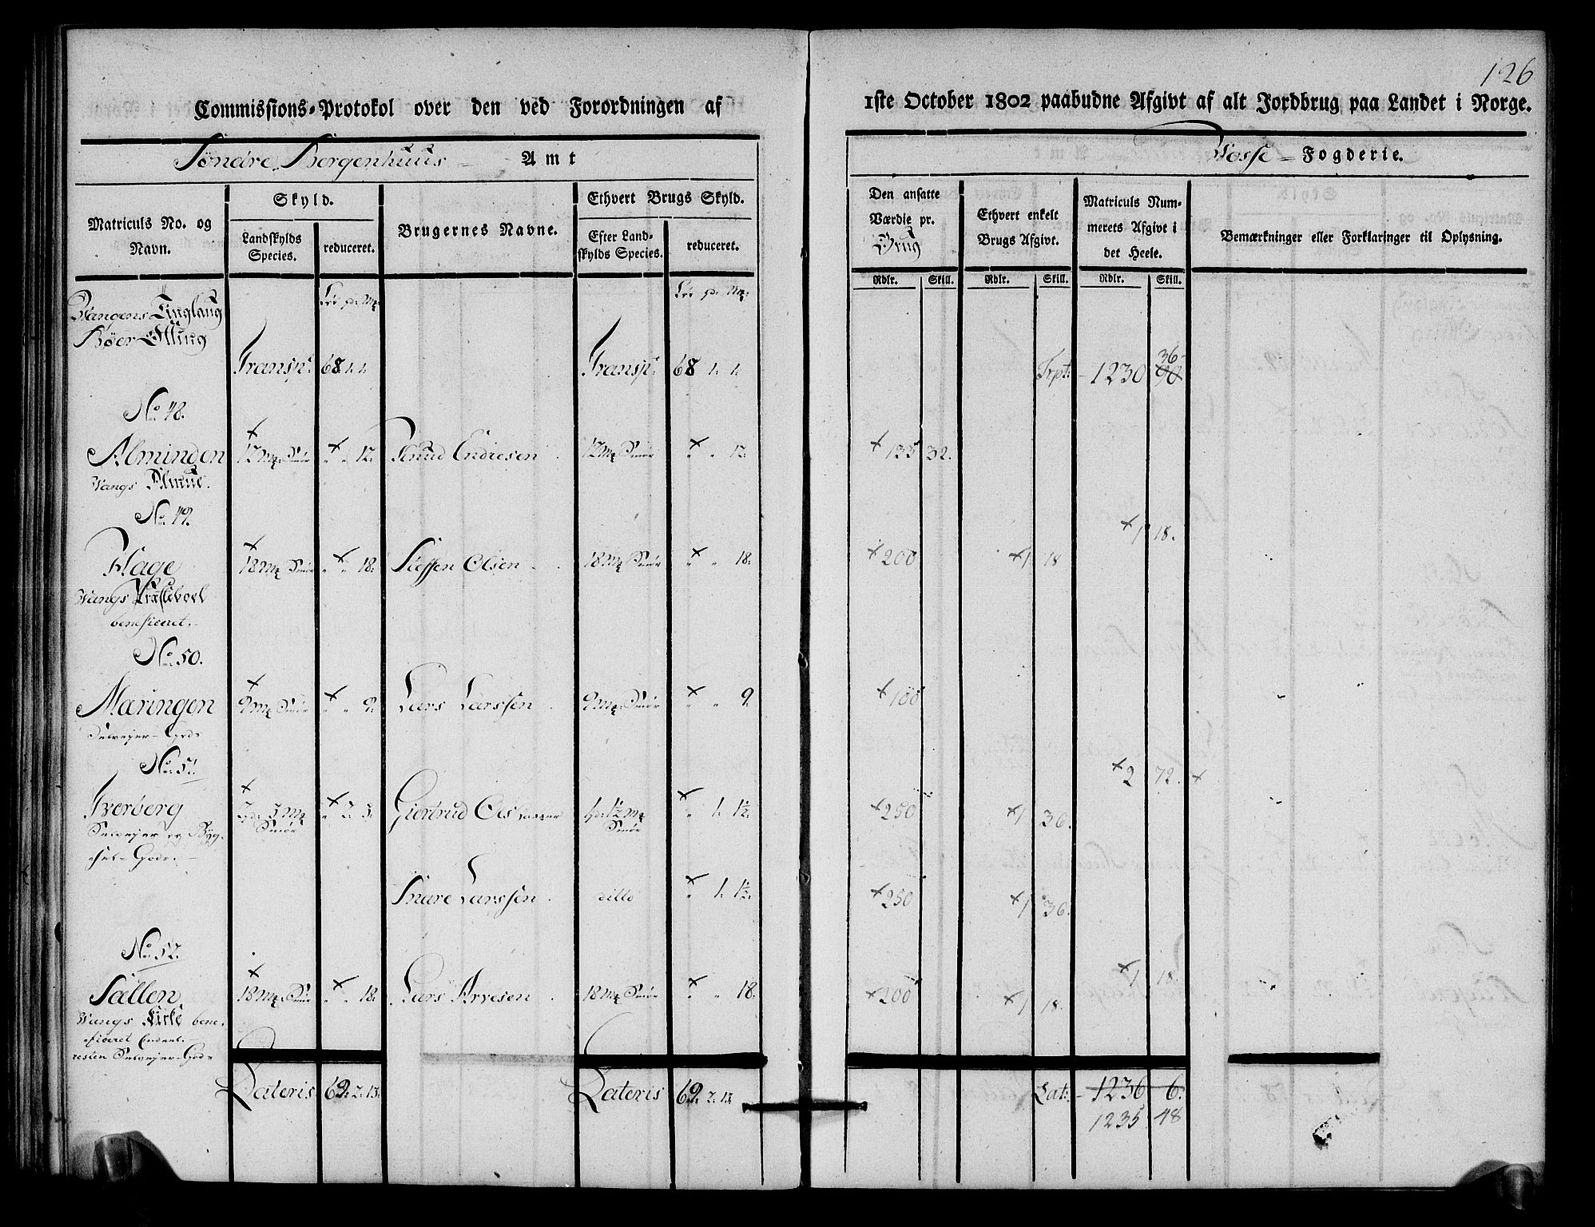 126
Commissions-Protokol over den ved Forordningen af
1ste October 1802 paabudne Afgivt af alt Jordbrug paa Landet i Norge.
Søndre Bergenhuus Amt
Vosse Fogderie.
Matriculs No. og Navn.
Skyld.
Landskylds Species.
reduceret.
Brugernes Navne.
Ethvert Brugs Skyld.
Efter Landskylds Species.
reduceret.
Den ansatte Værdie pr. Brug
Rdlr. Skill.
Ethvert enkelt Brugs Afgivt.
Rdlr. Skill.
Matriculs Nummerets Afgivt i det Heele.
Rdlr. Skill.
Bemærkninger eller Forklaringer til Oplysning.
Vangens Tinglaug
Bøer Otting
Transp. 68. 1. 1. Transp. 68 1. 1. Trpt. 1230 36
No. 48.
Almingen 12 mk Smør 12. Knud Endresen 12 mk Smør 12. 135 32.
Vangs
No. 49.
1 18.
Flage 18 mk Smør 18. Steffen Olsen 18 mk Smør 18. 200 1 18
Vangs
beneficeret.
No. 50.
Mæringen 9 mk Smør 9. Lars Larssen 9 mk Smør 9. 100
Selvejer-Gods
No. 51.
2 72.
3 mk Smør 2. 3. Giertrud 1½ mk Smør 1. 1½. 250 1 36.
Selvejer og Byg-
sel-Gods.
Snare Larssen ditto 1. 1½. 250 1 36.
No. 52.
1 18.
Sællen 18 mk Smør 18. Lars Arvesen 18 mk Smør 18. 200 1 18.
Vangs Kirke bene-
ficeret
Selvejer-Gods
Lateris 69. 2. 13. Lateris 69. 2. 13. Lat: 1236 6.
1235 48